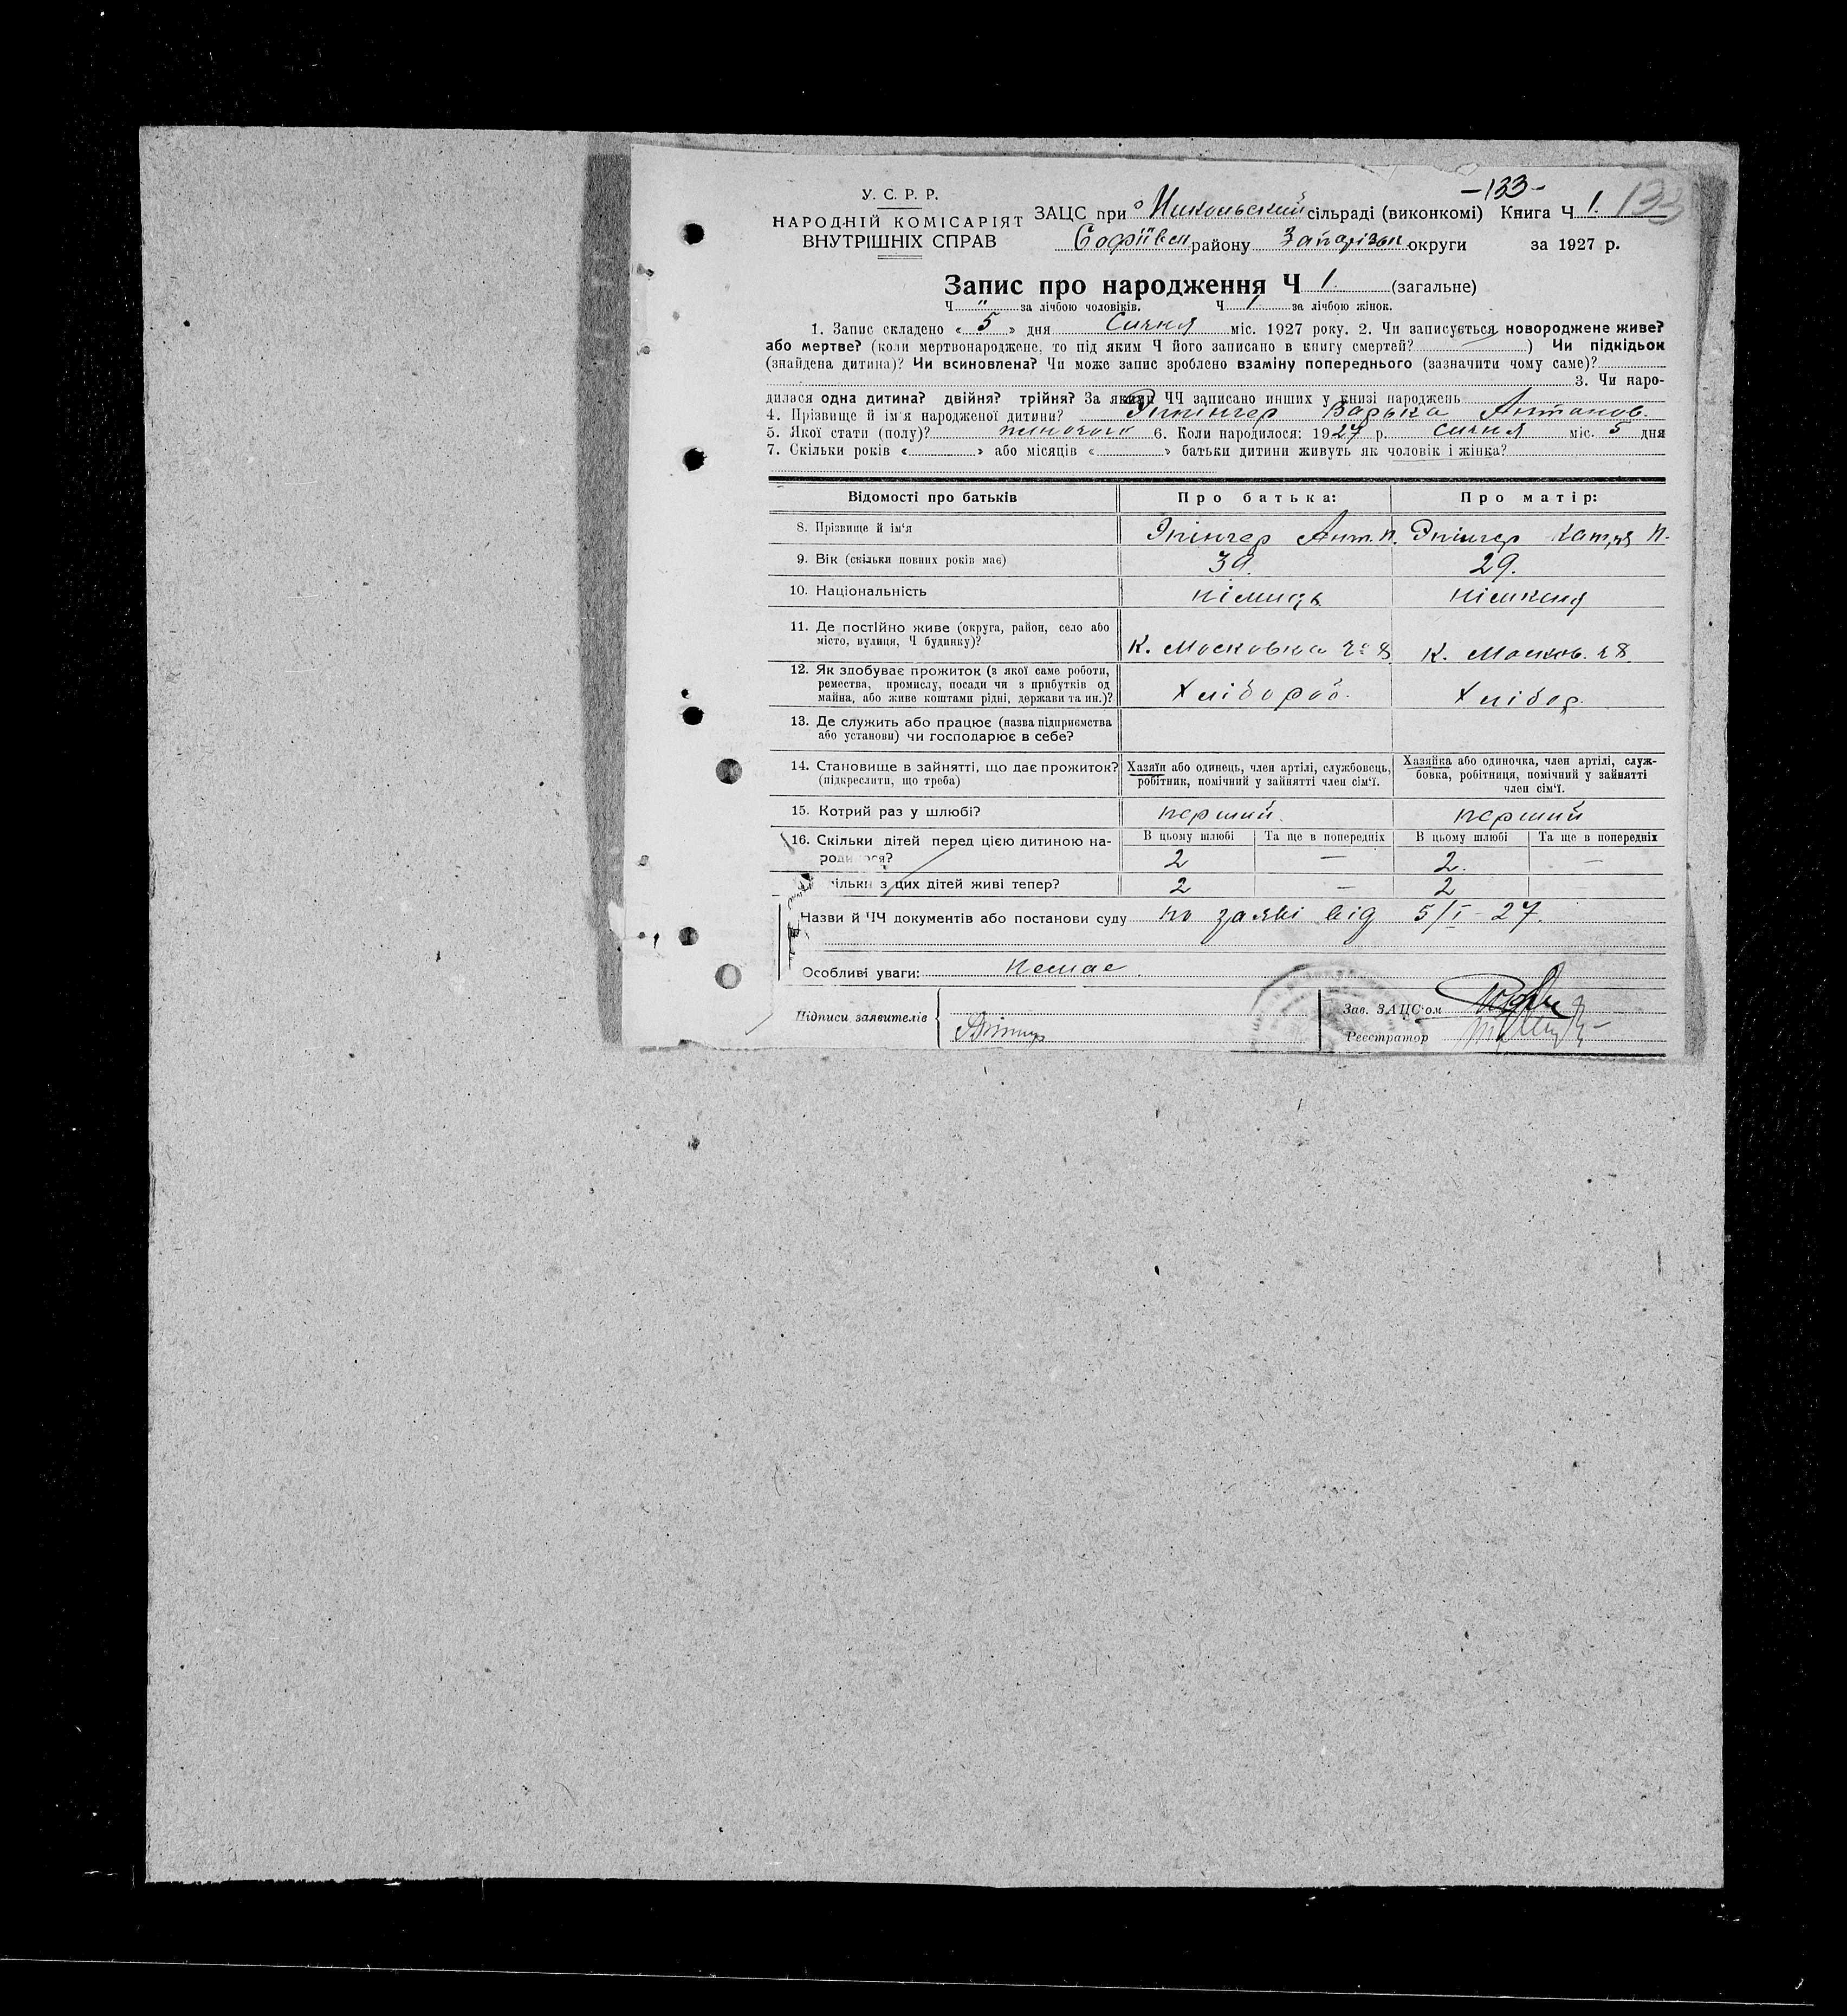 -133-
У. С. Р. Р.
НАРОДНІЙ КОМІСАРІЯТ
ВНУТРІШНІХ СПРАВ
ЗАЦС при Никольський сільраді (виконкомі) Книга Ч 1. 133
Софіївськ району Запорізьк округи за 1927 р.
Запис про народження Ч 1. (загальне)
Ч " за лічбою чоловіків. Ч 1 за лічбою жінок.
1. Запис складено « 5 » дня Сичня міс. 1927 року. 2. Чи записується новороджене живе?
або мертве? (коли мертвонароджене, то під яким Ч його записано в книгу смертей? ) Чи підкідьок
(знайдена дитина)? Чи всиновлена? Чи може запис зроблено взаміну попереднього (зазначити чому саме)?
3. Чи наро-
дилася одна дитина? двійня? трійня? За якими ЧЧ записано инших у книзі народжень
4. Прізвище й ім'я народженої дитини? Эпінгер Варька Антонов.
5. Якої стати (полу)? жиночого 6. Коли народилося: 1927 р. сичня міс. 5 дня
7. Скільки років « » або місяців « » батьки дитини живуть як чоловік і жінка?
Відомості про батьків Про батька: Про матір:
8. Прізвище й ім'я Эпінгер Ант. П. Эпінгер Катря П.
9. Вік (скільки повних років має) 39. 29.
10. Національність німиць німкиня
11. Де постійно живе (округа, район, село або
місто, вулиця, Ч будинку)? К. Московка ч. 8 К. Московк. ч 8.
12. Як здобуває прожиток (з якої саме роботи,
ремества, промислу, посади чи з прибутків од
майна, або живе коштами рідні, держави та ин.)? Хлібороб. Хлібор.
13. Де служить або працює (назва підприємства
або установи) чи господарює в себе?
14. Становище в зайнятті, що дає прожиток?
(підкреслити, що треба)
Хазяїн або одинець, член артілі, службовець,
робітник, помічний у зайнятті член сім'ї.
Хазяйка або одиночка, член артілі, служ-
бовка, робітниця, помічний у зайнятті
член сім'ї.
15. Котрий раз у шлюбі? перший. перший
16. Скільки дітей перед цією дитиною на-
родилося?
В цьому шлюбі Та ще в попередніх В цьому шлюбі Та ще в попередніх
2 — 2. —
ільки з цих дітей живі тепер? 2 — 2
Назви й ЧЧ документів або постанови суду по заяві від 5/I - 27.
Особливі уваги: немає.
Підписи заявителів
Зав. ЗАЦС'ом
Реєстратор